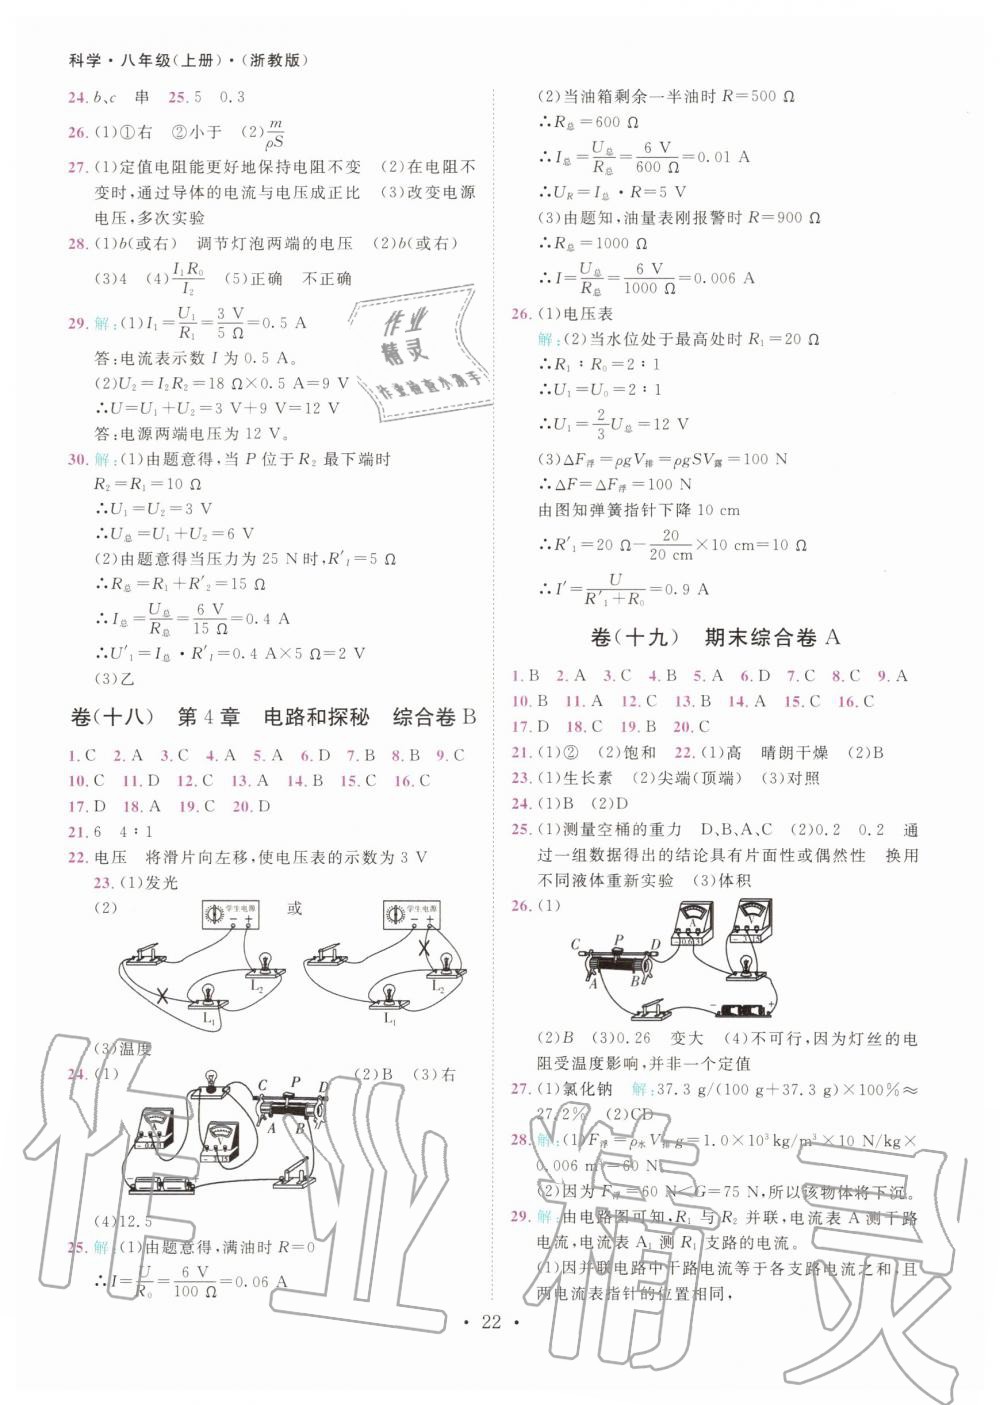 科学·八年级(上册)·(浙教版)
24. b、c 串 25. 5 0.3
26. (1)①右 ②小于 (2)m/ρS
27. (1)定值电阻能更好地保持电阻不变 (2)在电阻不
变时,通过导体的电流与电压成正比 (3)改变电源
电压,多次实验
28. (1)b(或右) 调节灯泡两端的电压 (2)b(或右)
(3)4 (4)I₁R₀/I₂ (5)正确 不正确
29. 解:(1)I₁=U₁/R₁=3 V/5 Ω=0.5 A
答:电流表示数 I 为 0.5 A。
(2)U₂=I₂R₂=18 Ω×0.5 A=9 V
∴U=U₁+U₂=3 V+9 V=12 V
答:电源两端电压为 12 V。
30. 解:(1)由题意得,当 P 位于 R₂ 最下端时
R₂=R₁=10 Ω
∴U₁=U₂=3 V
∴U总=U₁+U₂=6 V
(2)由题意得当压力为 25 N 时,R′₁=5 Ω
∴R总=R₁+R′₂=15 Ω
∴I总=U总/R总=6 V/15 Ω=0.4 A
∴U′₁=I总·R′₁=0.4 A×5 Ω=2 V
(3)乙
卷(十八) 第4章 电路和探秘 综合卷B
1. C 2. A 3. C 4. A 5. A 6. D 7. B 8. B 9. C
10. C 11. D 12. C 13. A 14. B 15. C 16. C
17. D 18. A 19. C 20. D
21. 6 4∶1
22. 电压 将滑片向左移,使电压表的示数为 3 V
23. (1)发光
(2) 或
学生电源 学生电源
L₂ L₁ L₂ L₁
(3)温度
24. (1) (2)B (3)右
C P D
A B
(4)12.5
25. 解:(1)由题意得,满油时 R=0
∴I=U/R₀=6 V/100 Ω=0.06 A
(2)当油箱剩余一半油时 R=500 Ω
∴R总=600 Ω
∴I总=U总/R总=6 V/600 Ω=0.01 A
∴U_R=I总·R=5 V
(3)由题知,油量表刚报警时 R=900 Ω
∴R总=1000 Ω
∴I=U总/R总=6 V/1000 Ω=0.006 A
26. (1)电压表
解:(2)当水位处于最高处时 R₁=20 Ω
∴R₁∶R₀=2∶1
∴U₁=U₀=2∶1
∴U₁=2/3U总=12 V
(3)ΔF浮=ρgV排=ρgSV露=100 N
∴ΔF=ΔF浮=100 N
由图知弹簧指针下降 10 cm
∴R′₁=20 Ω-20/20 cm×10 cm=10 Ω
∴I′=U/(R′₁+R₀)=0.9 A
卷(十九) 期末综合卷A
1. B 2. A 3. C 4. B 5. A 6. D 7. C 8. C 9. A
10. B 11. A 12. C 13. B 14. A 15. C 16. C
17. D 18. C 19. B 20. C
21. (1)② (2)饱和 22. (1)高 晴朗干燥 (2)B
23. (1)生长素 (2)尖端(顶端) (3)对照
24. (1)B (2)D
25. (1)测量空桶的重力 D、B、A、C (2)0.2 0.2 通
过一组数据得出的结论具有片面性或偶然性 换用
不同液体重新实验 (3)体积
26. (1)
C P D
A B
(2)B (3)0.26 变大 (4)不可行,因为灯丝的电
阻受温度影响,并非一个定值
27. (1)氯化钠 解:37.3 g/(100 g+37.3 g)×100%≈
27.2% (2)CD
28. 解:(1)F浮=ρ水V排g=1.0×10³kg/m³×10 N/kg×
0.006 m³=60 N
(2)因为 F浮=60 N<G=75 N,所以该物体将下沉。
29. 解:由电路图可知,R₁ 与 R₂ 并联,电流表 A 测干路
电流,电流表 A₁ 测 R₁ 支路的电流。
(1)因并联电路中干路电流等于各支路电流之和,且
两电流表指针的位置相同,
·22·
作业
精灵
作业检查小助手
作业精灵